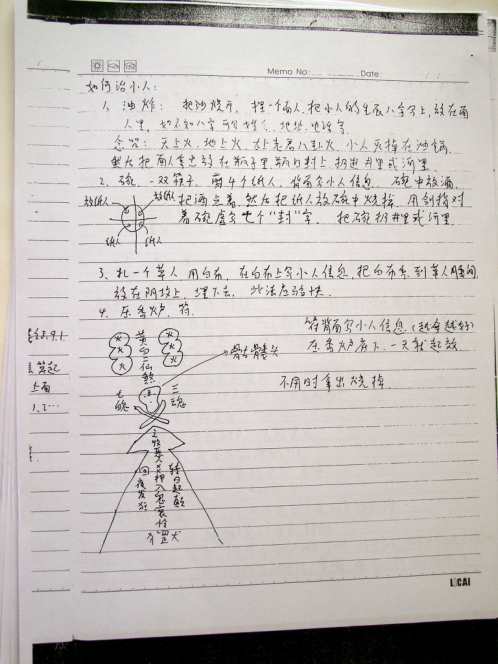 Memo No. Date / /
如何治小人:
1. 油炸: 把油烧开, 捏一个面人, 把小人的生辰八字写上, 放在面
人里, 如不知八字可写姓名, 地址, 电话等.
念咒: 天上火, 地上火, 太上老君八卦火, 小人灭掉在油锅.
然后把面人拿出放在瓶子里, 瓶口封上, 扔进井里或河里.
2. 碗, 一双筷子, 剪4个纸人, 背面写小人信息, 碗中放酒,
把酒点着, 然后把纸人放碗中烧掉, 用剑指对
着碗虚写七个“封”字, 把碗扔井里或河里.
放纸人
放纸人
纸人
纸人
3. 扎一个草人, 用白布, 在白布上写小人信息, 把白布系到草人腰间,
放在阴坟上, 埋下去, 此法应验快.
4. 压香炉, 符.
符背面写小人信息 (越全越好)
压香炉底下, 一天就起效
不用时拿出烧掉
骷髅头
黄白二仙煞
火
火
火
火
火
火
七魄
三魂
上面
LICAI